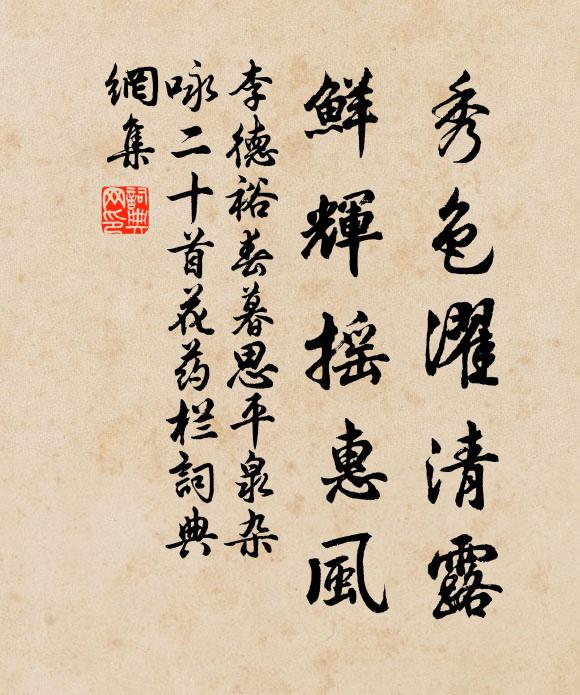 秀色濯清露
鮮輝搖惠風
李德裕春暮思平泉杂
咏二十首花药栏詞典
網集
詞典網印